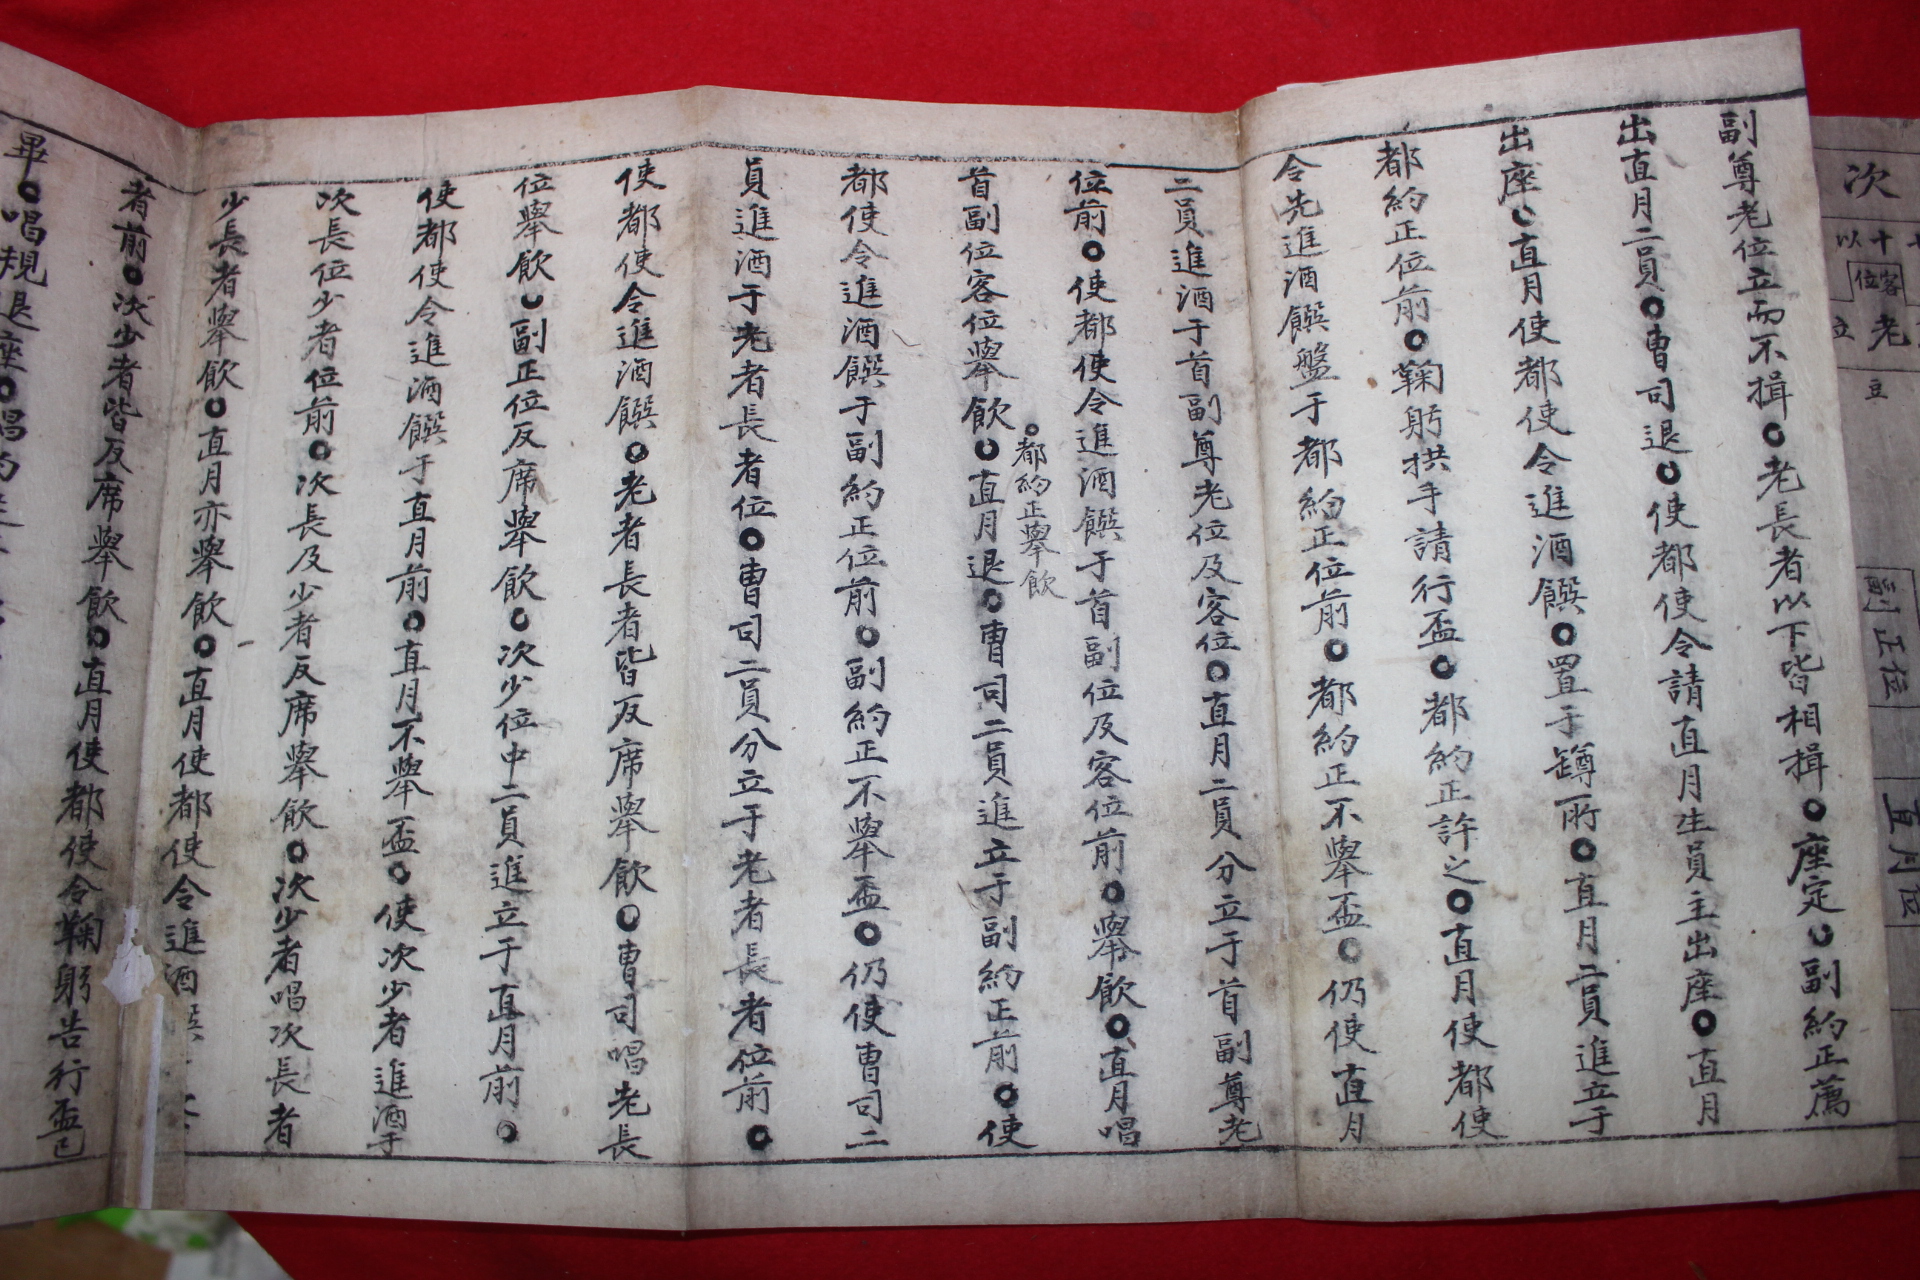 次
十
以
客位
老
立
立
副正位
直月位
副尊老位立而不揖○老長者以下皆相揖○座定○副約正薦
出直月二員○曺司退○使都使令請直月生員主出座○直月
出座○直月使都使令進酒饌○置于罇所○直月二員進立于
都約正位前○鞠躬拱手請行盃○都約正許之○直月使都使
令先進酒饌盤于都約正位前○都約正不擧盃○仍使直月
二員進酒于首副尊老位及客位○直月二員分立于首副尊老
位前○使都使令進酒饌于首副位及客位前○擧飮○直月唱
○都約正擧飮
首副位客位擧飮○直月退○曺司二員進立于副約正前○使
都使令進酒饌于副約正位前○副約正不擧盃○仍使曺司二
員進酒于老者長者位○曺司二員分立于老者長者位前○
使都使令進酒饌○老者長者皆反席擧飮○曺司唱老長
位擧飮○副正位反席擧飮○次少位中二員進立于直月前○
使都使令進酒饌于直月前○直月不擧盃○使次少者進酒于
次長位少者位前○次長及少者反席擧飮○次少者唱次長者
少長者擧飮○直月亦擧飮○直月使都使令進酒饌
者前○次少者皆反席擧飮○直月使都使令鞠躬告行盃已
畢○唱規退座○唱約